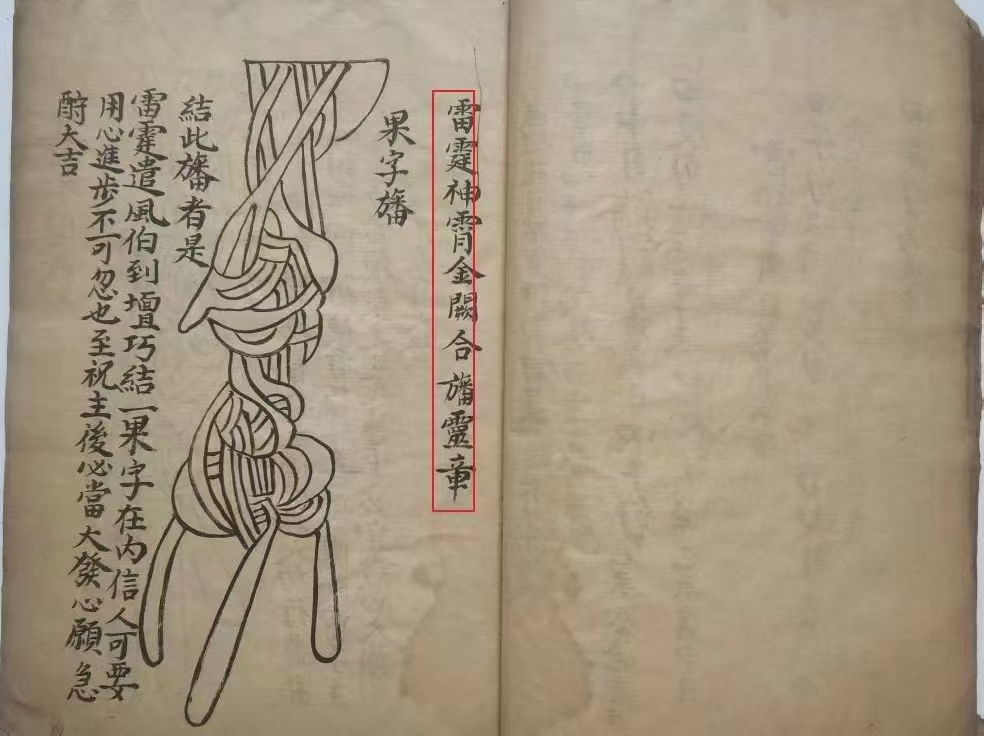 雷霆神霄金闕合旛靈章
果字旛
結此旛者是
雷霆遣風伯到壇巧結一果字在內信人可要
用心進步不可忽也至祝主後必當大發心願急
酧大吉